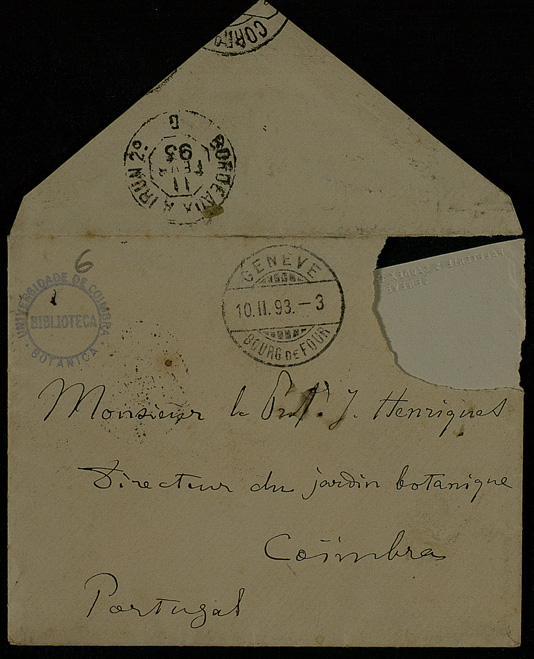 CORR
BORDEAUX A IRUN 2º
11
FEVR
93
G
6
UNIVERSIDADE DE COIMBRA
BIBLIOTECA
BOTANICA
GENÈVE
10.II.93.-3
BOURG DE FOUR
Monsieur le Prof. J. Henriques
Directeur du jardin botanique
Coïmbra
Portugal